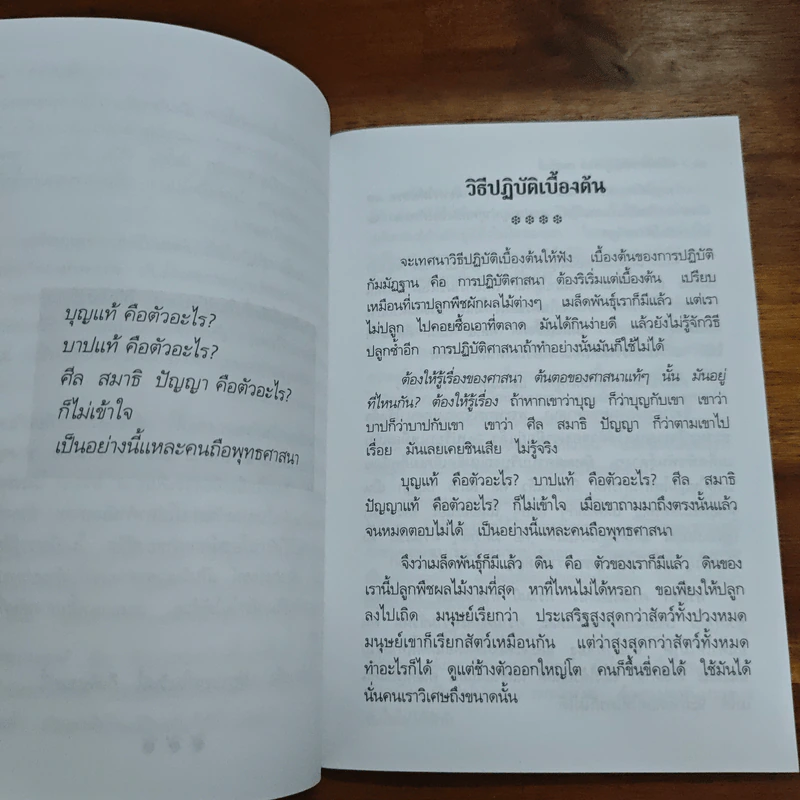 บุญแท้ คือตัวอะไร?
บาปแท้ คือตัวอะไร?
ศีล สมาธิ ปัญญา คือตัวอะไร?
ก็ไม่เข้าใจ
เป็นอย่างนี้แหละคนถือพุทธศาสนา
วิธีปฏิบัติเบื้องต้น
จะเทศนาวิธีปฏิบัติเบื้องต้นให้ฟัง เบื้องต้นของการปฏิบัติ
กัมมัฏฐาน คือ การปฏิบัติศาสนา ต้องริเริ่มแต่เบื้องต้น เปรียบ
เหมือนที่เราปลูกพืชผักผลไม้ต่างๆ เมล็ดพันธุ์เราก็มีแล้ว แต่เรา
ไม่ปลูก ไปคอยซื้อเอาที่ตลาด มันได้กินง่ายดี แล้วยังไม่รู้จักวิธี
ปลูกซ้ำอีก การปฏิบัติศาสนาถ้าทำอย่างนั้นมันก็ใช้ไม่ได้
ต้องให้รู้เรื่องของศาสนา ต้นตอของศาสนาแท้ๆ นั้น มันอยู่
ที่ไหนกัน? ต้องให้รู้เรื่อง ถ้าหากเขาว่าบุญ ก็ว่าบุญกับเขา เขาว่า
บาปก็ว่าบาปกับเขา เขาว่า ศีล สมาธิ ปัญญา ก็ว่าตามเขาไป
เรื่อย มันเลยเคยชินเสีย ไม่รู้จริง
บุญแท้ คือตัวอะไร? บาปแท้ คือตัวอะไร? ศีล สมาธิ
ปัญญาแท้ คือตัวอะไร? ก็ไม่เข้าใจ เมื่อเขาถามมาถึงตรงนั้นแล้ว
จนหมดตอบไม่ได้ เป็นอย่างนี้แหละคนถือพุทธศาสนา
จึงว่าเมล็ดพันธุ์ก็มีแล้ว ดิน คือ ตัวของเราก็มีแล้ว ดินของ
เรานี้ปลูกพืชผลไม้งามที่สุด หาที่ไหนไม่ได้หรอก ขอเพียงให้ปลูก
ลงไปเถิด มนุษย์เรียกว่า ประเสริฐสูงสุดกว่าสัตว์ทั้งปวงหมด
มนุษย์เขาก็เรียกสัตว์เหมือนกัน แต่ว่าสูงสุดกว่าสัตว์ทั้งหมด
ทำอะไรก็ได้ ดูแต่ช้างตัวออกใหญ่โต คนก็ขึ้นขี่คอได้ ใช้มันได้
นั่นคนเราวิเศษถึงขนาดนั้น